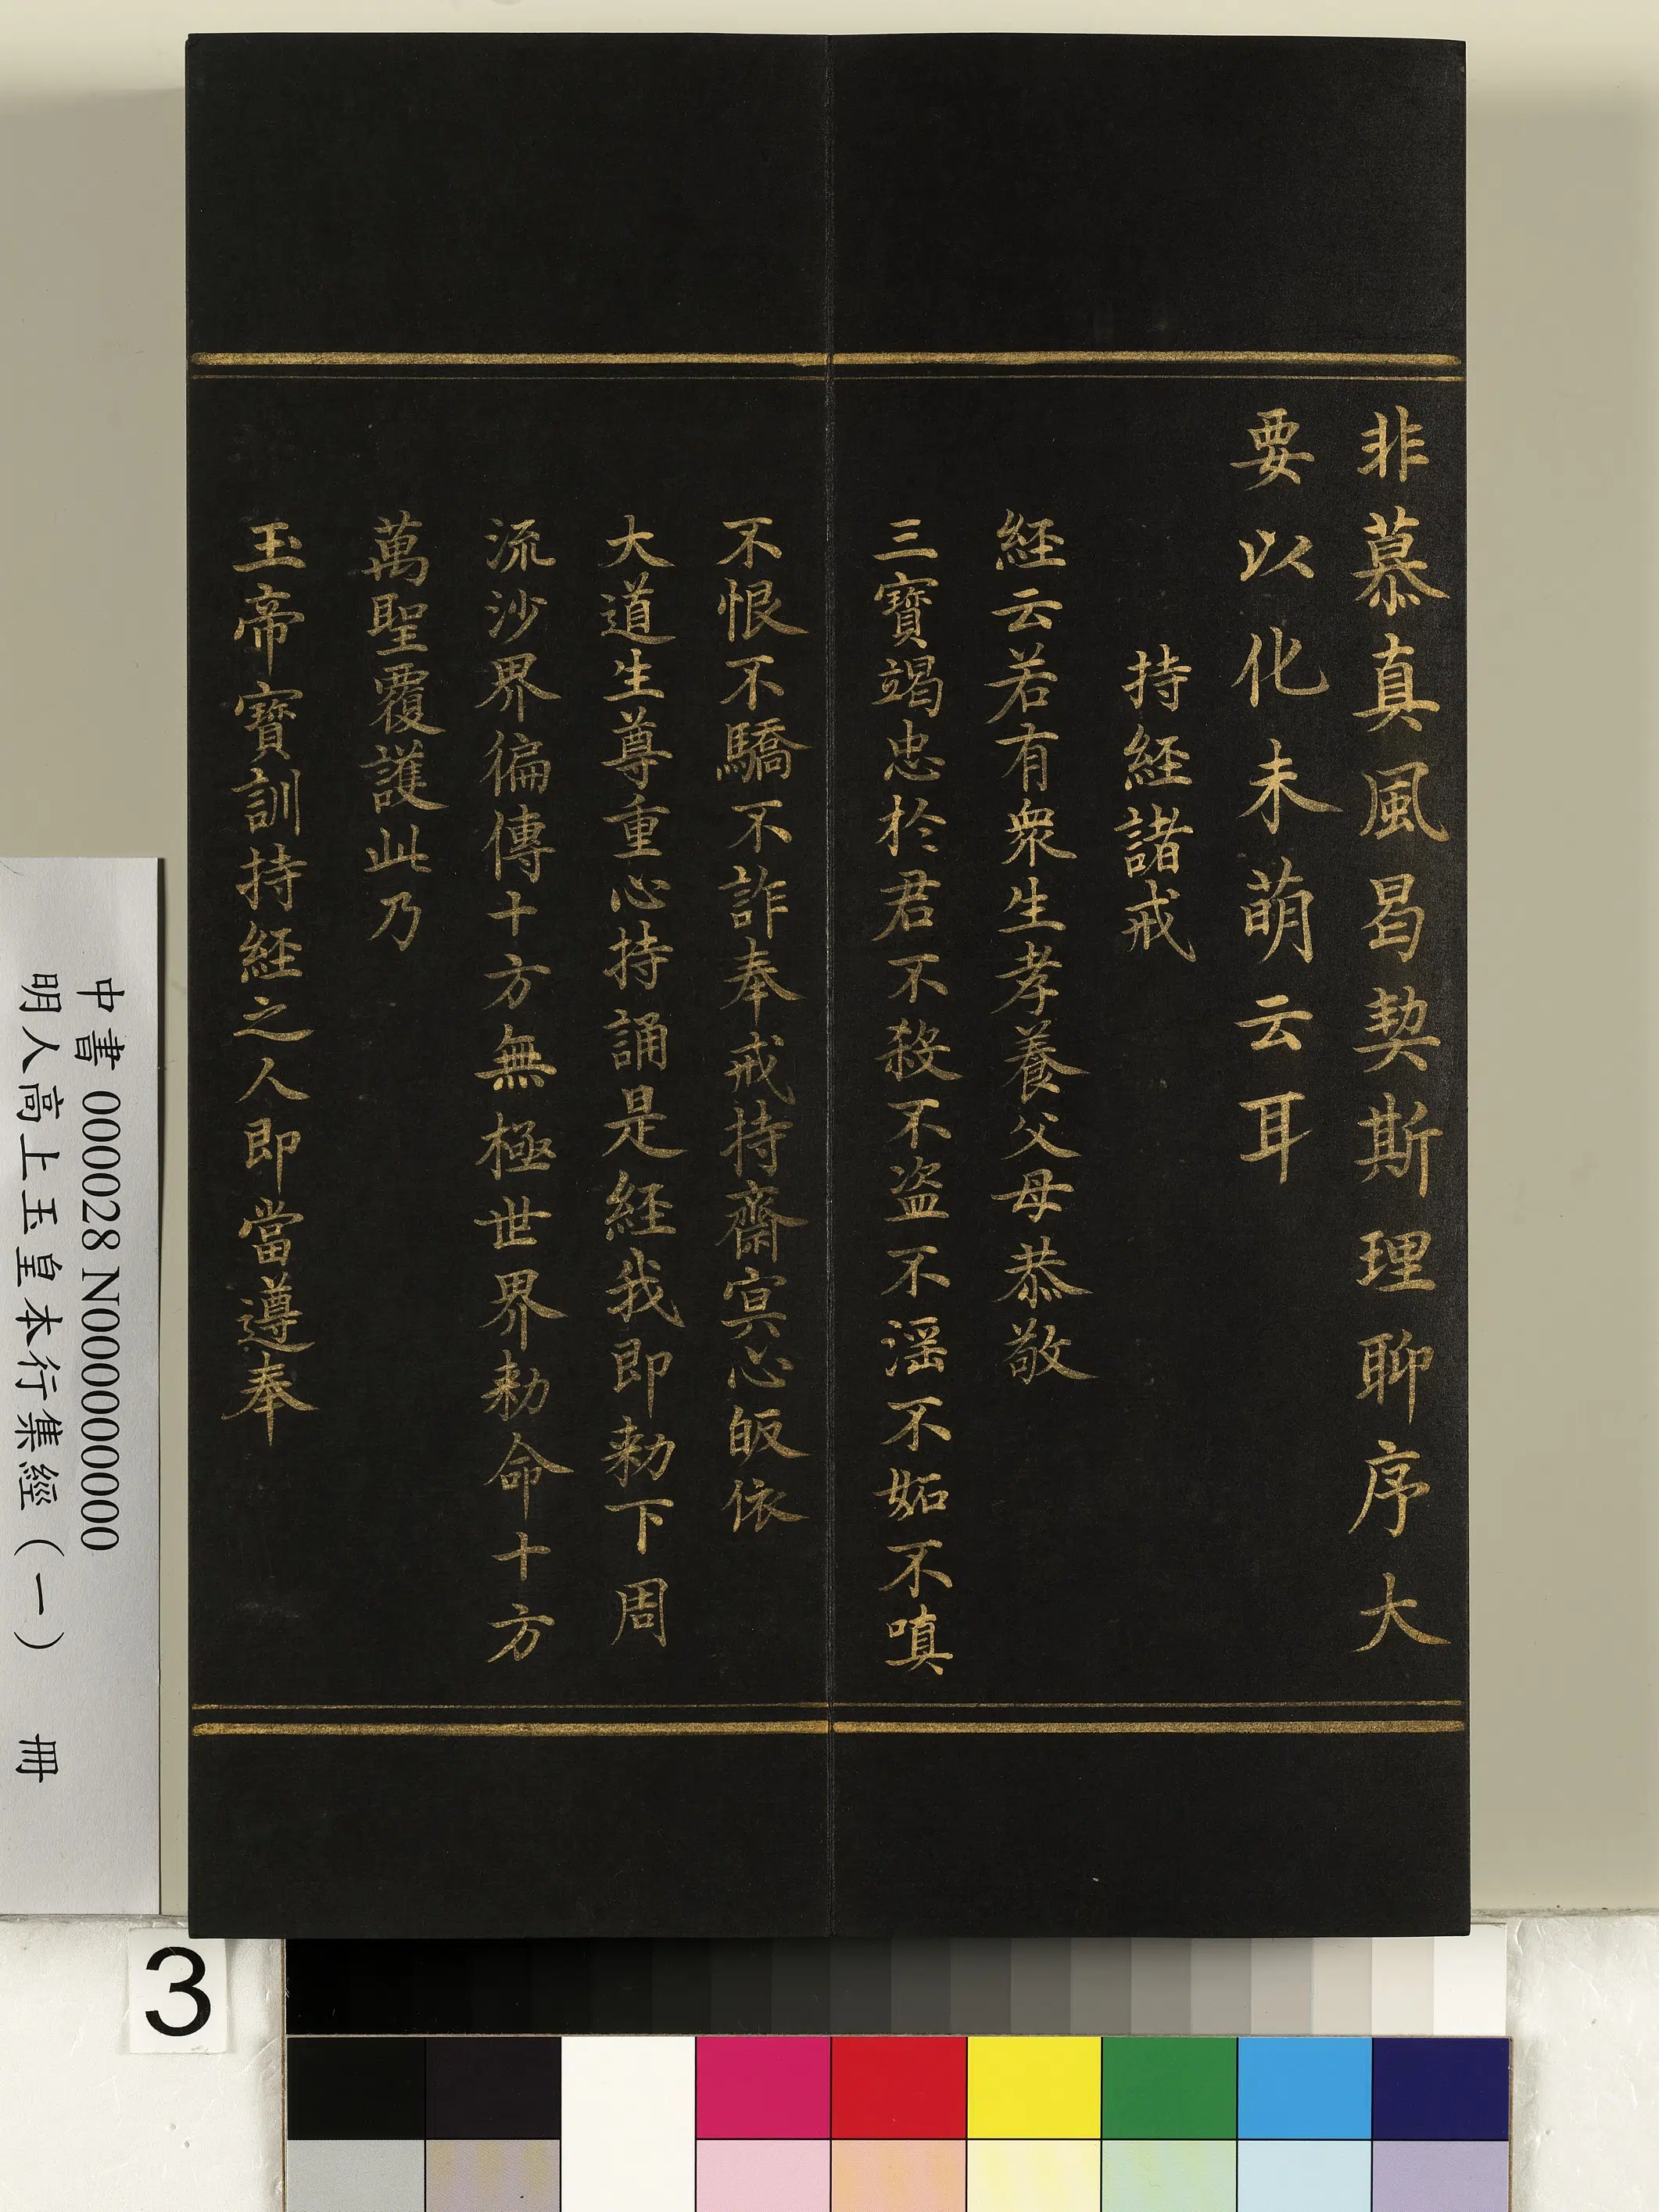 非慕真風曷契斯理聊序大
要以化未萌云耳
持経諸戒
経云若有衆生孝養父母恭敬
三寳竭忠於君不殺不盗不滛不妬不嗔
不恨不驕不詐奉戒持齋𡨋心皈依
大道生尊重心持誦是経我即勑下周
流沙界徧傳十方無極世界勑命十方
萬聖覆護此乃
玉帝寳訓持経之人即當遵奉
中書 000028 N000000000
明人高上玉皇本行集經（一） 冊
3